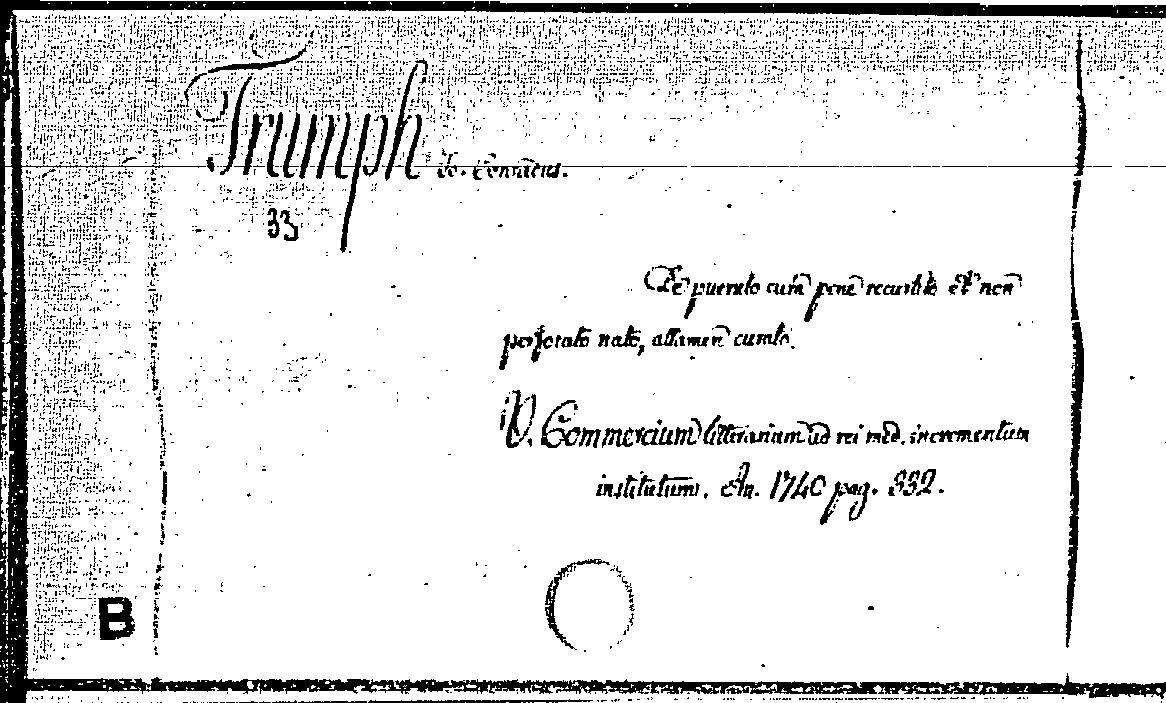 Trumph Jo. Conradus.
33
De puerulo cum pene recurvo et non
perforato nato, attamen curato.
V. Commercium litterarium ad rei med. incrementum
institutum. An. 1740 pag. 332.
B